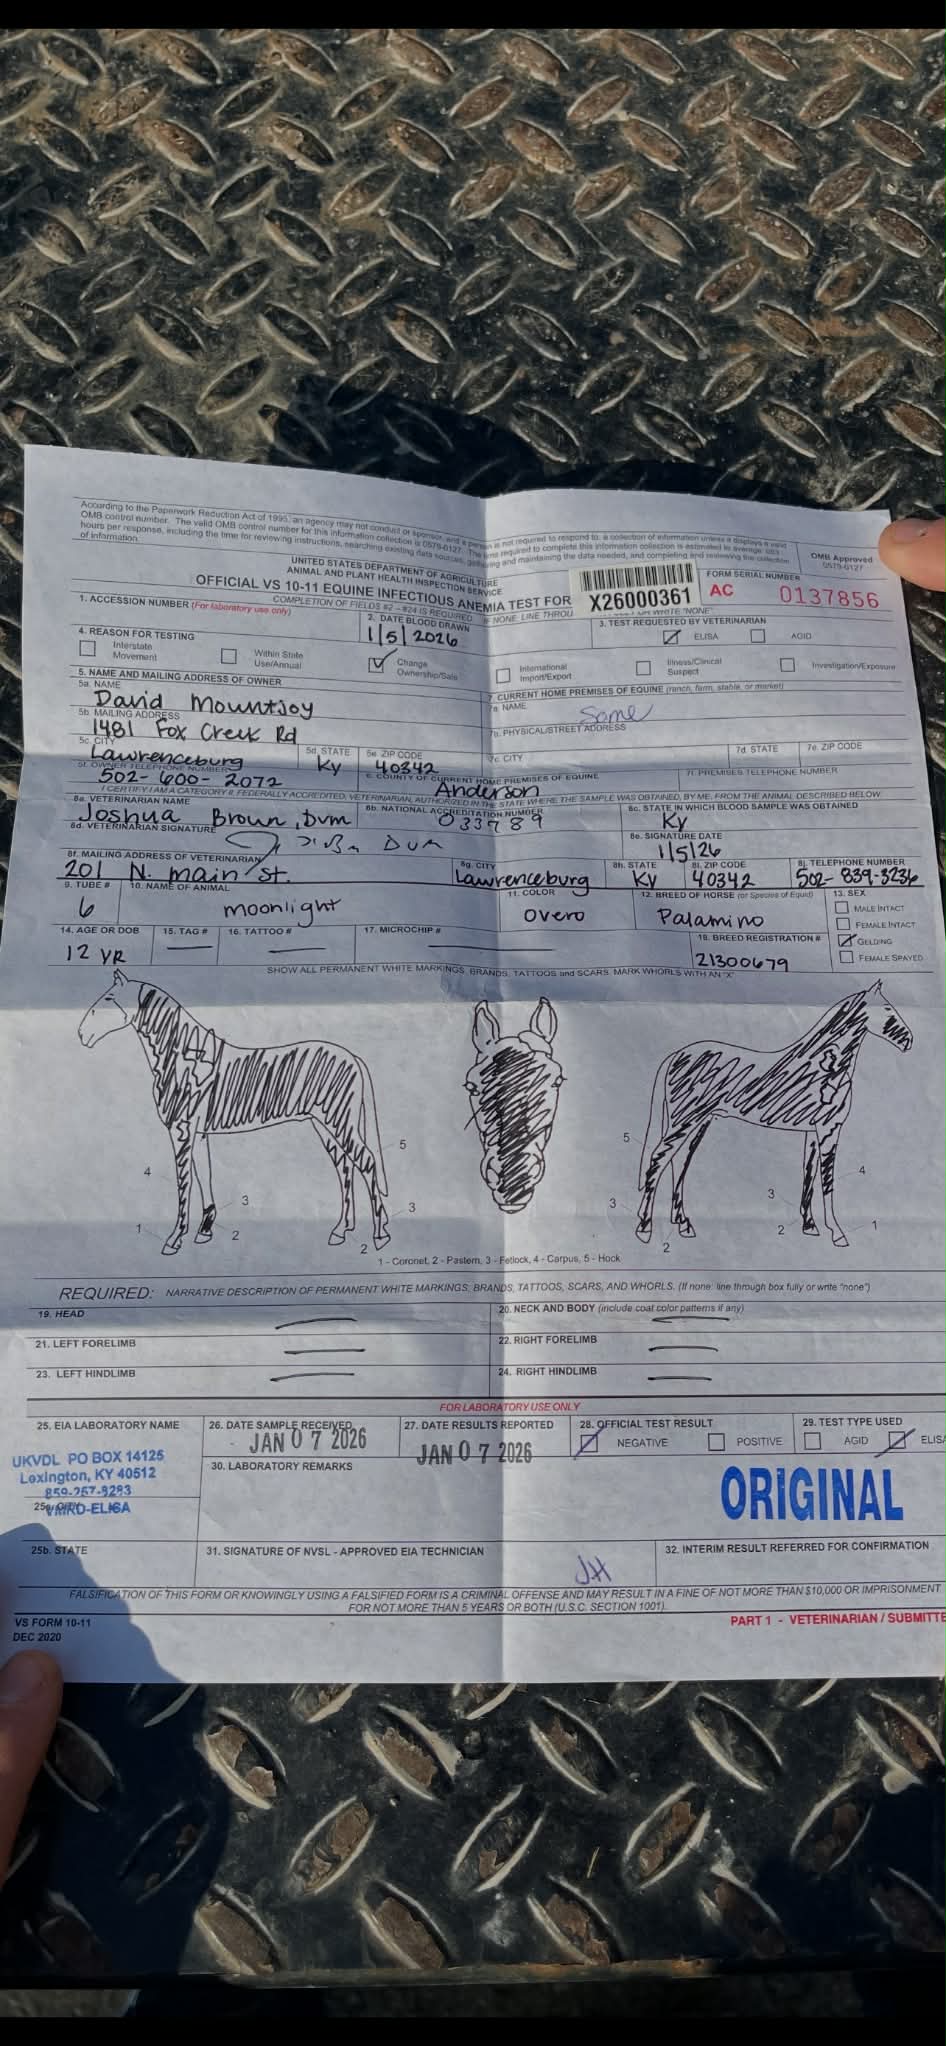 According to the Paperwork Reduction Act of 1995, an agency may not conduct or sponsor, and a person is not required to respond to, a collection of information unless it displays a valid
OMB control number. The valid OMB control number for this information collection is 0579-0127. The time required to complete this information collection is estimated to average .083
hours per response, including the time for reviewing instructions, searching existing data sources, gathering and maintaining the data needed, and completing and reviewing the collection
of information.
OMB Approved
0579-0127
UNITED STATES DEPARTMENT OF AGRICULTURE
ANIMAL AND PLANT HEALTH INSPECTION SERVICE
OFFICIAL VS 10-11 EQUINE INFECTIOUS ANEMIA TEST FOR
X26000361
FORM SERIAL NUMBER
AC 0137856
COMPLETION OF FIELDS #2 – #24 IS REQUIRED. IF NONE, LINE THROU OR WRITE "NONE".
1. ACCESSION NUMBER (For laboratory use only)
2. DATE BLOOD DRAWN
1/5/2026
3. TEST REQUESTED BY VETERINARIAN
ELISA
AGID
4. REASON FOR TESTING
Interstate Movement
Within State Use/Annual
Change Ownership/Sale
International Import/Export
Illness/Clinical Suspect
Investigation/Exposure
5. NAME AND MAILING ADDRESS OF OWNER
7. CURRENT HOME PREMISES OF EQUINE (ranch, farm, stable, or market)
5a. NAME
David Mountjoy
7a. NAME
Same
5b. MAILING ADDRESS
1481 Fox Creek Rd
7b. PHYSICAL/STREET ADDRESS
5c. CITY
Lawrenceburg
5d. STATE
Ky
5e. ZIP CODE
40342
7c. CITY
7d. STATE
7e. ZIP CODE
5f. OWNER TELEPHONE NUMBER
502-600-2072
6. COUNTY OF CURRENT HOME PREMISES OF EQUINE
Anderson
7f. PREMISES TELEPHONE NUMBER
I CERTIFY I AM A CATEGORY II, FEDERALLY ACCREDITED, VETERINARIAN, AUTHORIZED IN THE STATE WHERE THE SAMPLE WAS OBTAINED, BY ME, FROM THE ANIMAL DESCRIBED BELOW
8a. VETERINARIAN NAME
Joshua Brown, Dvm
8b. NATIONAL ACCREDITATION NUMBER
033989
8c. STATE IN WHICH BLOOD SAMPLE WAS OBTAINED
Ky
8d. VETERINARIAN SIGNATURE
DVM
8e. SIGNATURE DATE
1/5/26
8f. MAILING ADDRESS OF VETERINARIAN
201 N. main st.
8g. CITY
Lawrenceburg
8h. STATE
Ky
8i. ZIP CODE
40342
8j. TELEPHONE NUMBER
502-839-3236
9. TUBE #
6
10. NAME OF ANIMAL
moonlight
11. COLOR
overo
12. BREED OF HORSE (or Species of Equid)
Palamino
13. SEX
MALE INTACT
FEMALE INTACT
GELDING
FEMALE SPAYED
14. AGE OR DOB
12 YR
15. TAG #
16. TATTOO #
17. MICROCHIP #
18. BREED REGISTRATION #
21300679
SHOW ALL PERMANENT WHITE MARKINGS, BRANDS, TATTOOS and SCARS. MARK WHORLS WITH AN "X"
5 5
4 4
3 3 3 3
1 2 2 1
2 2
1 - Coronet, 2 - Pastern, 3 - Fetlock, 4 - Carpus, 5 - Hock
REQUIRED: NARRATIVE DESCRIPTION OF PERMANENT WHITE MARKINGS, BRANDS, TATTOOS, SCARS, AND WHORLS. (If none: line through box fully or write "none")
19. HEAD
20. NECK AND BODY (include coat color patterns if any)
21. LEFT FORELIMB
22. RIGHT FORELIMB
23. LEFT HINDLIMB
24. RIGHT HINDLIMB
FOR LABORATORY USE ONLY
25. EIA LABORATORY NAME
UKVDL PO BOX 14125
Lexington, KY 40512
859-257-8283
VMRD-ELISA
26. DATE SAMPLE RECEIVED
JAN 07 2026
27. DATE RESULTS REPORTED
JAN 07 2026
28. OFFICIAL TEST RESULT
NEGATIVE
POSITIVE
29. TEST TYPE USED
AGID
ELISA
30. LABORATORY REMARKS
ORIGINAL
25b. STATE
31. SIGNATURE OF NVSL - APPROVED EIA TECHNICIAN
JH
32. INTERIM RESULT REFERRED FOR CONFIRMATION
FALSIFICATION OF THIS FORM OR KNOWINGLY USING A FALSIFIED FORM IS A CRIMINAL OFFENSE AND MAY RESULT IN A FINE OF NOT MORE THAN $10,000 OR IMPRISONMENT
FOR NOT MORE THAN 5 YEARS OR BOTH (U.S.C. SECTION 1001).
VS FORM 10-11
DEC 2020
PART 1 - VETERINARIAN / SUBMITTE